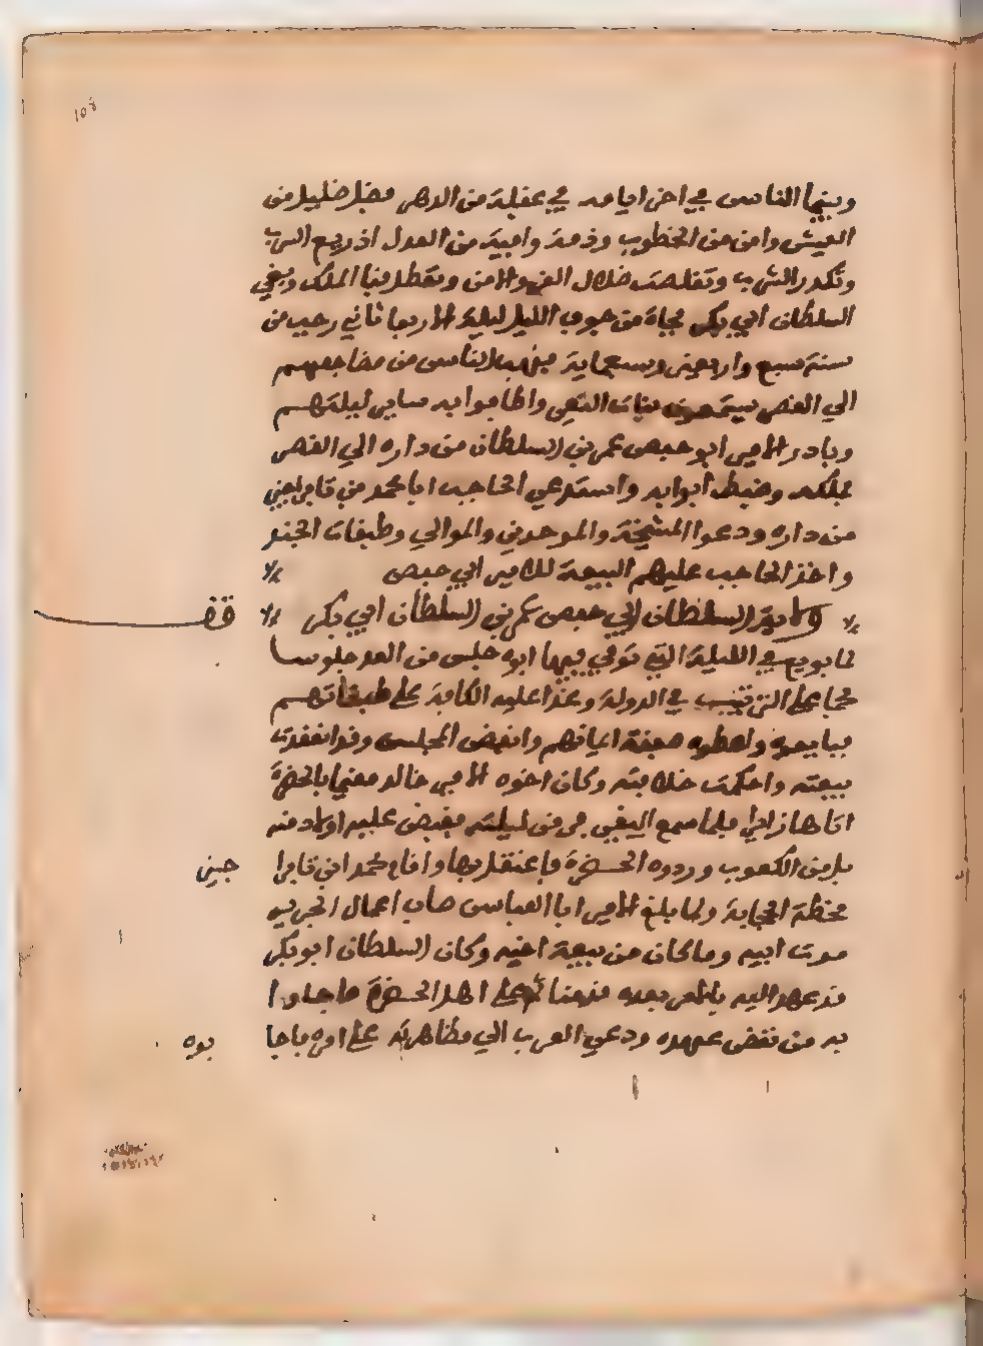 ١٥٤
وبينما الناس في اخر ايامه في غفلة من الدهر وظل ظليل من
العيش وامن من الخطوب وذمة وافية من العدل اذ ريع السرب
وتكدر الشرب وتقلصت ظلال العز والامن وتعطل فنا الملك ونعي
السلطان ابي بكر فجاة من جوف الليل ليلة الاربعا ثاني رجب من
سنة سبع واربعين وسبعماية فهب الناس من مضاجعهم
الي القصر يستمعون نبات النعي واطافوا به ساير ليلتهم
وبادر الامير ابو حفص عمر بن السلطان من داره الي القصر
فملكه وضبط ابوابه واستدعي الحاجب ابا محمد بن تافراجين
من داره ودعوا المشيخة والموحدين والموالي وطبقات الجند
واخذ الحاجب عليهم البيعة للامير ابي حفص
ولاية السلطان ابي حفص عمر بن السلطان ابي بكر
قف
لما بويع في الليلة التي توفي فيها ابوه جلس من الغد جلوسا
فخما علي الترتيب في الدولة وغدا عليه الكافة علي طبقاتهم
فبايعوه واعطوه صفقة ايمانهم وانفض المجلس وقد انعقدت
بيعته واحكمت خلافته وكان اخوه الامير خالد مقيما بالحضرة
اتاها زايرا فلما سمع اليقين فر من ليلته فقبض عليه اولاد منه
بل من الكعوب وردوه الحضرة فاعتقل بها وا محمد ابن تافرا
جين
بخطة الحجابة ولما بلغ الامير ابا العباس صاب اعمال الجريد
موت ابيه وما كان من بيعة اخيه وكان السلطان ابو بكر
قد عهد اليه بالامر بعده علي اهل الحضرة ما جاوا
به من نقض عهده ودعي العرب الي مظاهرته علي امره فاجا
بوه